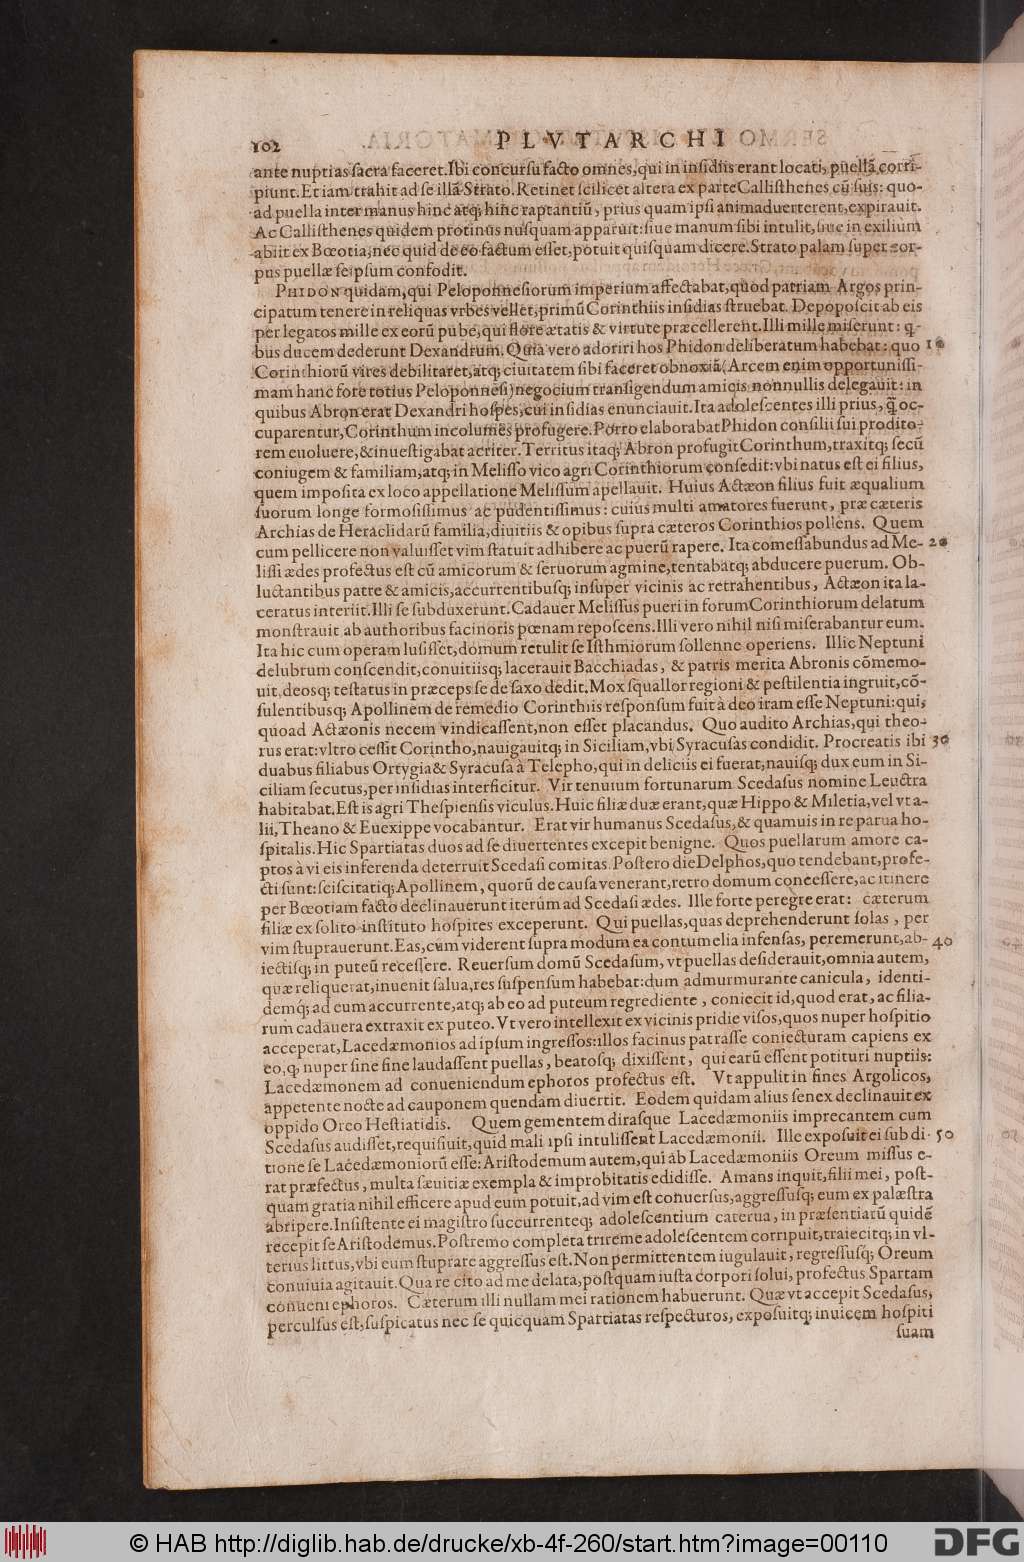 102 PLVTARCHI
ante nuptias sacra faceret. Ibi concursu facto omnes, qui in insidiis erant locati, puellã corri-
piunt. Et iam trahit ad se illã Strato. Retinet scilicet altera ex parte Callisthenes cũ suis: quo-
ad puella inter manus hinc atq; hinc raptantiũ, prius quam ipsi animaduerterent, expirauit.
Ac Callisthenes quidem protinus nusquam apparuit: siue manum sibi intulit, siue in exilium
abiit ex Bœotia, nec quid de eo factum esset, potuit quisquam dicere. Strato palam super cor-
pus puellæ seipsum confodit.
PHIDON quidam, qui Peloponnesiorum imperium affectabat, quod patriam Argos prin-
cipatum tenere in reliquas vrbes vellet, primũ Corinthiis insidias struebat. Depoposcit ab eis
per legatos mille ex eorũ pube, qui flore ætatis & virtute præcellerent. Illi mille miserunt: q-
bus ducem dederunt Dexandrum. Quia vero adoriri hos Phidon deliberatum habebat: quo 10
Corinthiorũ vires debilitaret, atq; ciuitatem sibi faceret obnoxiã (Arcem enim opportunissi-
mam hanc fore totius Peloponnesi) negocium transigendum amicis nonnullis delegauit: in
quibus Abron erat Dexandri hospes, cui insidias enunciauit. Ita adolescentes illi prius, q̃ oc-
cuparentur, Corinthum incolumes profugere. Porro elaborabat Phidon consilii sui prodito-
rem euoluere, & inuestigabat acriter. Territus itaq; Abron profugit Corinthum, traxitq; secũ
coniugem & familiam, atq; in Melisso vico agri Corinthiorum consedit: vbi natus est ei filius,
quem imposita ex loco appellatione Melissum apellauit. Huius Actæon filius fuit æqualium
suorum longe formosissimus ac pudentissimus: cuius multi amatores fuerunt, præ cæteris
Archias de Heraclidarũ familia, diuitiis & opibus supra cæteros Corinthios pollens. Quem
cum pellicere non valuisset vim statuit adhibere ac puerũ rapere. Ita comessabundus ad Me- 20
lissi ædes profectus est cũ amicorum & seruorum agmine, tentabatq; abducere puerum. Ob-
luctantibus patre & amicis, accurrentibusq; insuper vicinis ac retrahentibus, Actæon ita la-
ceratus interiit. Illi se subduxerunt. Cadauer Melissus pueri in forum Corinthiorum delatum
monstrauit ab authoribus facinoris pœnam reposcens. Illi vero nihil nisi miserabantur eum.
Ita hic cum operam lusisset, domum retulit se Isthmiorum sollenne operiens. Illic Neptuni
delubrum conscendit, conuitiisq; lacerauit Bacchiadas, & patris merita Abronis cõmemo-
uit, deosq; testatus in præceps se de saxo dedit. Mox squallor regioni & pestilentia ingruit, cõ-
sulentibusq; Apollinem de remedio Corinthiis responsum fuit à deo iram esse Neptuni: qui,
quoad Actæonis necem vindicassent, non esset placandus. Quo audito Archias, qui theo-
rus erat: vltro cessit Corintho, nauigauitq; in Siciliam, vbi Syracusas condidit. Procreatis ibi 30
duabus filiabus Ortygia & Syracusa à Telepho, qui in deliciis ei fuerat, nauisq; dux eum in Si-
ciliam secutus, per insidias interficitur. Vir tenuium fortunarum Scedasus nomine Leuctra
habitabat. Est is agri Thespiensis viculus. Huic filiæ duæ erant, quæ Hippo & Miletia, vel vt a-
lii, Theano & Euexippe vocabantur. Erat vir humanus Scedasus, & quamuis in re parua ho-
spitalis. Hic Spartiatas duos ad se diuertentes excepit benigne. Quos puellarum amore ca-
ptos à vi eis inferenda deterruit Scedasi comitas. Postero die Delphos, quo tendebant, profe-
cti sunt: sciscitatiq; Apollinem, quorũ de causa venerant, retro domum concessere, ac itinere
per Bœotiam facto declinauerunt iterũm ad Scedasi ædes. Ille forte peregre erat: cæterum
filiæ ex solito instituto hospites exceperunt. Qui puellas, quas deprehenderunt solas, per
vim stuprauerunt. Eas, cum viderent supra modum ea contumelia infensas, peremerunt, ab- 40
iectisq; in puteũ recessere. Reuersum domũ Scedasum, vt puellas desiderauit, omnia autem,
quæ reliquerat, inuenit salua, res suspensum habebat: dum admurmurante canicula, identi-
demq́; ad eum accurrente, atq; ab eo ad puteum regrediente, coniecit id, quod erat, ac filia-
rum cadauera extraxit ex puteo. Vt vero intellexit ex vicinis pridie visos, quos nuper hospitio
acceperat, Lacedæmonios ad ipsum ingressos: illos facinus patrasse coniecturam capiens ex
eo, q; nuper sine fine laudassent puellas, beatosq; dixissent, qui earũ essent potituri nuptiis:
Lacedæmonem ad conueniendum ephoros profectus est. Vt appulit in fines Argolicos,
appetente nocte ad cauponem quendam diuertit. Eodem quidam alius senex declinauit ex
oppido Oreo Hestiatidis. Quem gementem dirasque Lacedæmoniis imprecantem cum
Scedasus audisset, requisiuit, quid mali ipsi intulissent Lacedæmonii. Ille exposuit ei sub di- 50
tione se Lacedæmoniorũ esse: Aristodemum autem, qui ab Lacedæmoniis Oreum missus e-
rat præfectus, multa sæuitiæ exempla & improbitatis edidisse. Amans inquit, filii mei, post-
quam gratia nihil efficere apud eum potuit, ad vim est conuersus, aggressusq; eum ex palæstra
abripere. Insistente ei magistro succurrenteq; adolescentium caterua, in præsentiarũ quidẽ
recepit se Aristodemus. Postremo completa trireme adolescentem corripuit, traiecitq; in vl-
terius littus, vbi eum stuprare aggressus est. Non permittentem iugulauit, regressusq; Oreum
conuiuia agitauit. Qua re cito ad me delata, postquam iusta corpori solui, profectus Spartam
conueni ephoros. Cæterum illi nullam mei rationem habuerunt. Quæ vt accepit Scedasus,
perculsus est, suspicatus nec se quicquam Spartiatas respecturos, exposuitq; inuicem hospiti
suam
© HAB http://diglib.hab.de/drucke/xb-4f-260/start.htm?image=00110
DFG